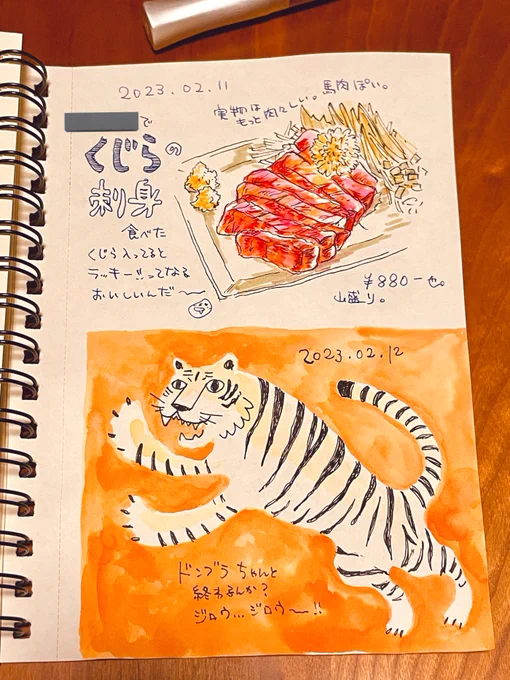 2023.02.11
馬肉ぽい。
実物は
もっと肉々しい。
で
くじらの
刺身
食べた
くじら入ってると
ラッキー!!ってなる
おいしいんだ〜
¥880-也。
山盛り。
2023.02.12
ドンブラちゃんと
終わるんか?
ジロウ...ジロウ〜!!